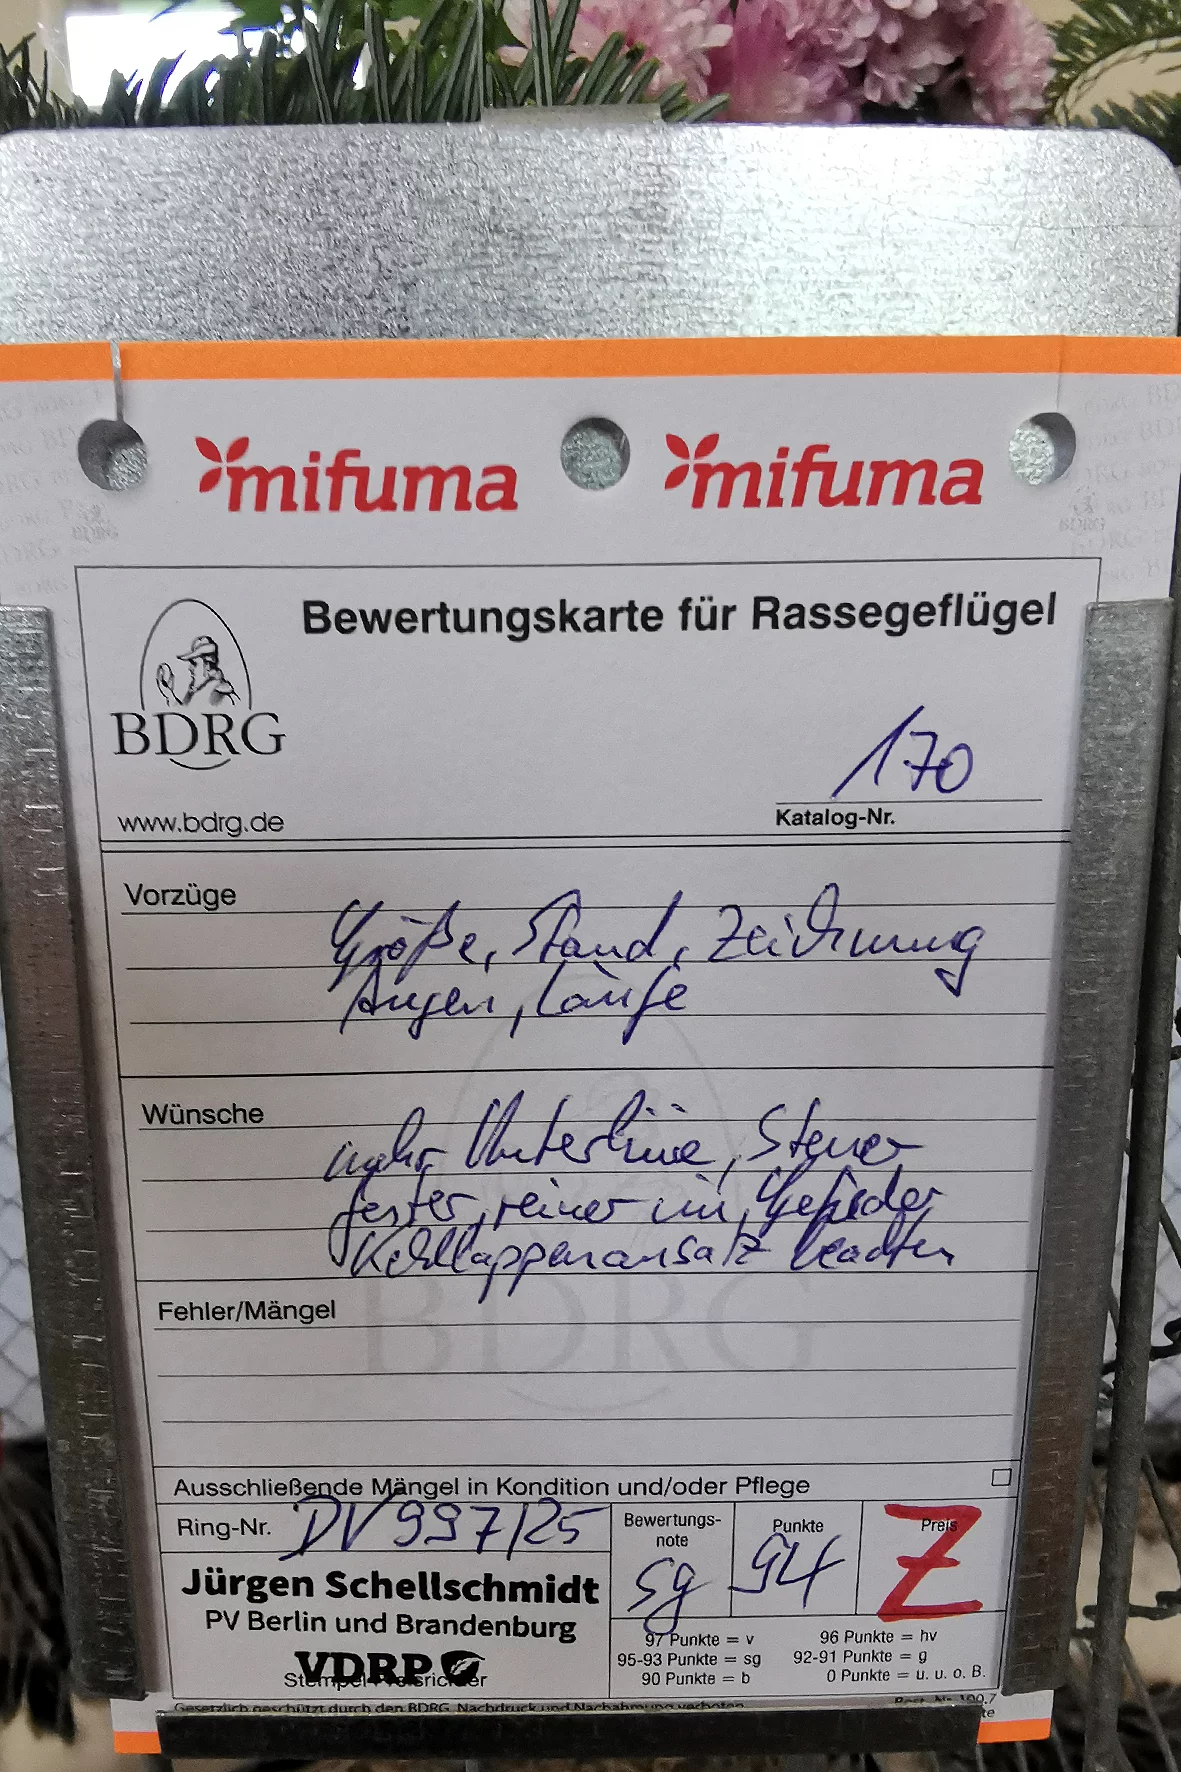 mifuma mifuma
Bewertungskarte für Rassegeflügel
BDRG
170
www.bdrg.de
Katalog-Nr.
Vorzüge
Größe, Stand, Zeichnung
Augen, Läufe
Wünsche
mehr Unterlinie, Steuer
fester, reiner im Gefieder
Kehllappenansatz beachten
BDRG
Fehler/Mängel
Ausschließende Mängel in Kondition und/oder Pflege
Ring-Nr. DV 997/25
Bewertungs-
note
sg
Punkte
94
Preis
Z
Jürgen Schellschmidt
PV Berlin und Brandenburg
VDRP
Stempel Preisrichter
97 Punkte = v 96 Punkte = hv
95-93 Punkte = sg 92-91 Punkte = g
90 Punkte = b 0 Punkte = u. u. o. B.
Gesetzlich geschützt durch den BDRG. Nachdruck und Nachahmung verboten